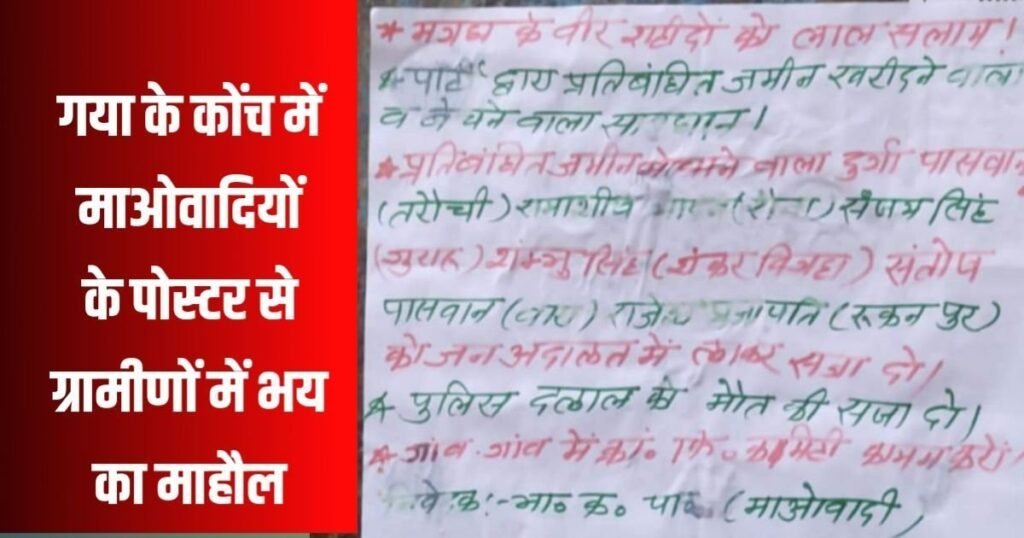 गया के कोंच में
माओवादियों
के पोस्टर से
ग्रामीणों में भय
का माहौल
* मगध के वीर शहीदों को लाल सलाम।
* पार्टी द्वारा प्रतिबंधित जमीन खरीदने वाला
व बेचने वाला सावधान।
* प्रतिबंधित जमीन बेचने वाला दुर्गा पासवान
(तरौची) रामाशीष (रौना) संजय सिंह
सिंह (शंकर बिगहा) संतोष
पासवान राजेन्द्र प्रजापति (रूकन पुर)
को जन अदालत में लाकर सजा दो।
* पुलिस दलाल को मौत की सजा दो।
* गांव-गांव में क्रां० कि० कमिटी कायम करो।
निवेदक:- भा० क० पा० (माओवादी)